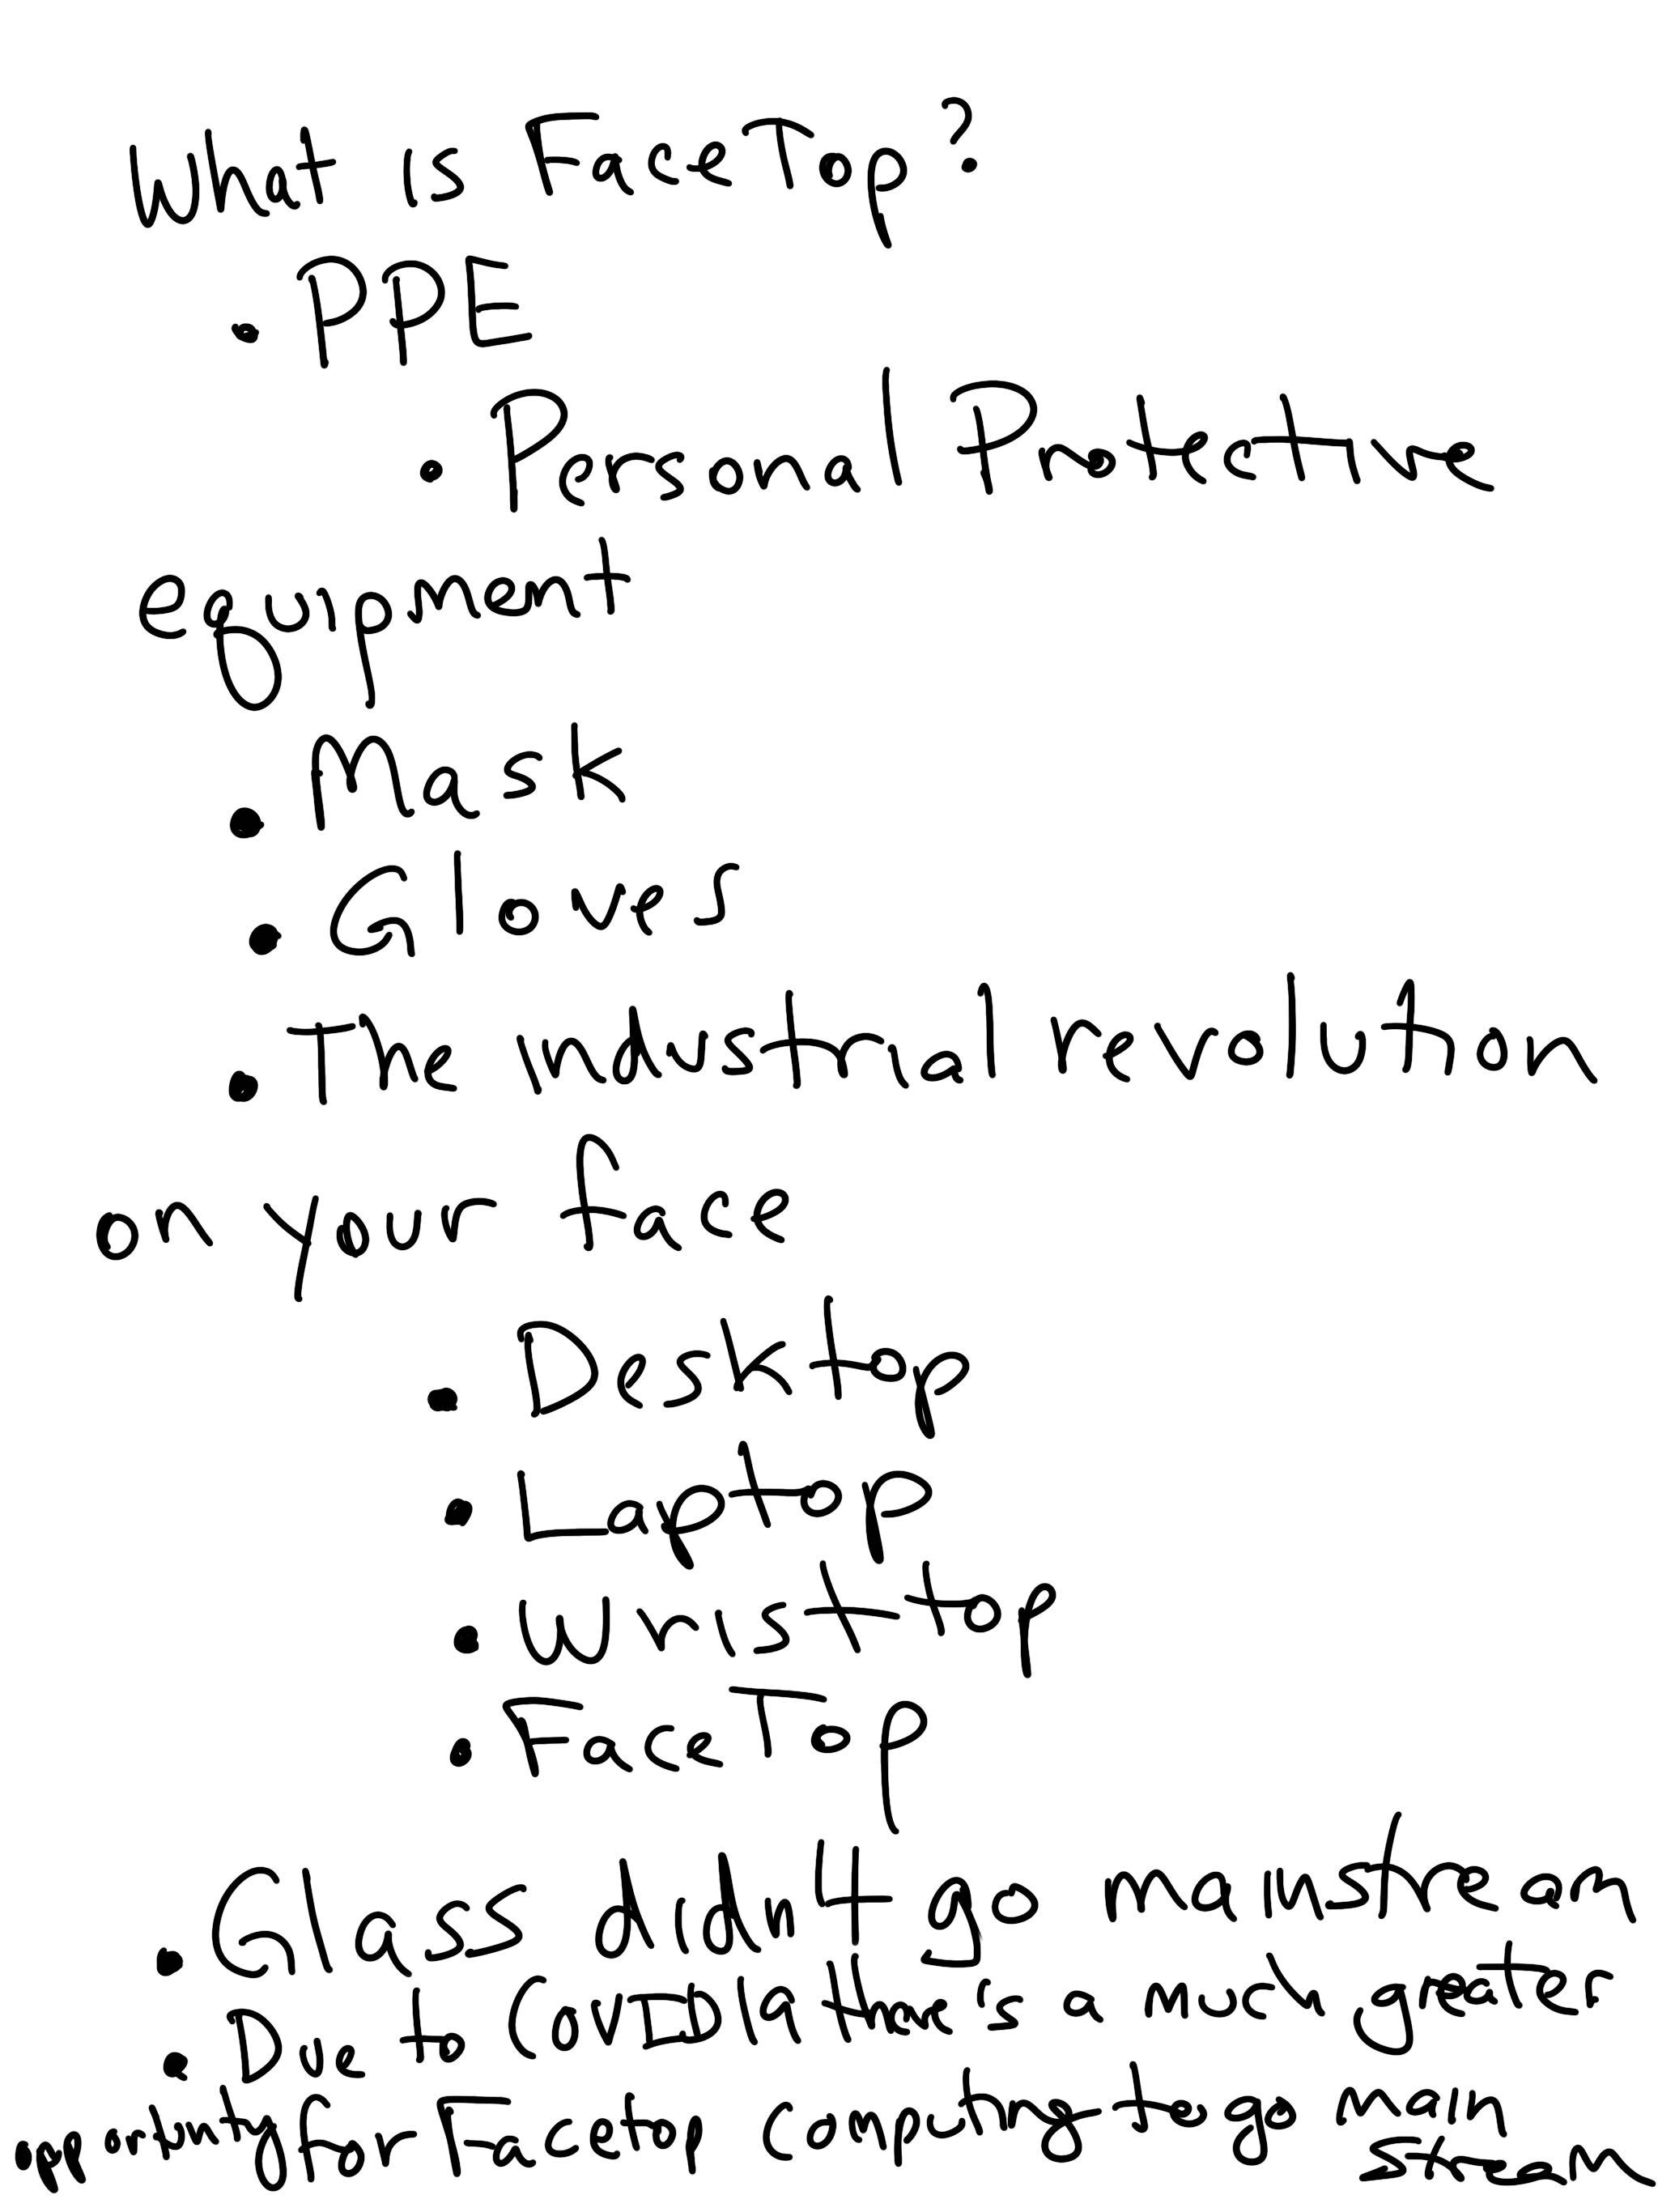 What is FaceTop?
• PPE
• Personal Protective
equipment
• Mask
• Gloves
• The industrial revolution
on your face
• Desktop
• Laptop
• Wristtop
• FaceTop
• Glass didn't go mainstream
• Due to COVID a much greater
opportunity for Facetop computing to go main
stream